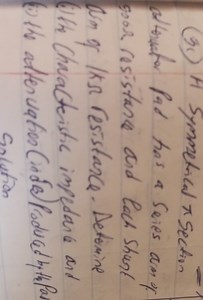 (3) A Symmetrical π Section
attenuator Pad has a Series arm of
500Ω resistance and each shunt
arm of 1KΩ resistance. Determine
(i) the Characteristic impedance and
(ii) the attenuation (in dB) Produced by the Pad
Solution